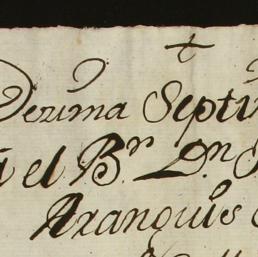 Dezima Septi
á el Br. Dn.
Aranguis